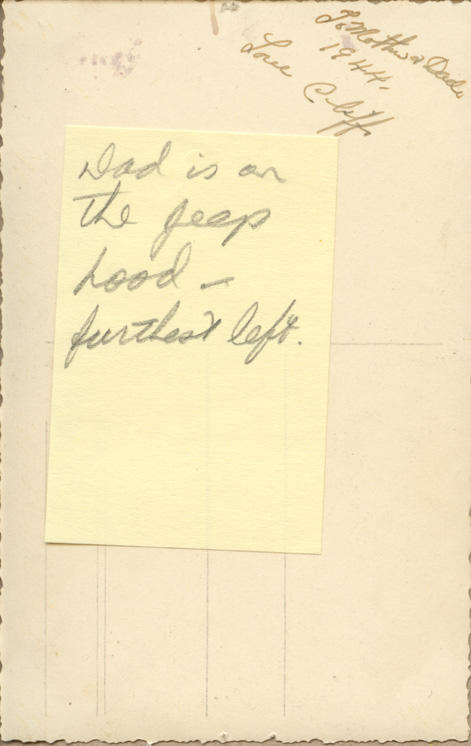 To Mother & Dad,
1944.
Love Cliff.
Dad is on
the jeep
hood –
furthest left.